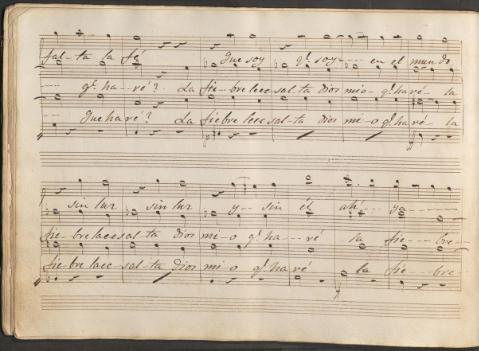 sal-ta la fé que soy q.e soy --- en el mundo
q.e ha--ré? La fie-bre la ec sal-ta Dios mio q.e haré- la
que haré? La fiebre la ec sal-ta Dios mi-o q.e haré- la
sin luz sin luz y -- sin él ah! -- yo ---
fie-bre la ec sal-ta Dios mi-o q.e ha--ré la fie---bre-
fie-bre la ec-sal-ta Dios mi-o q.e haré la fie---bre